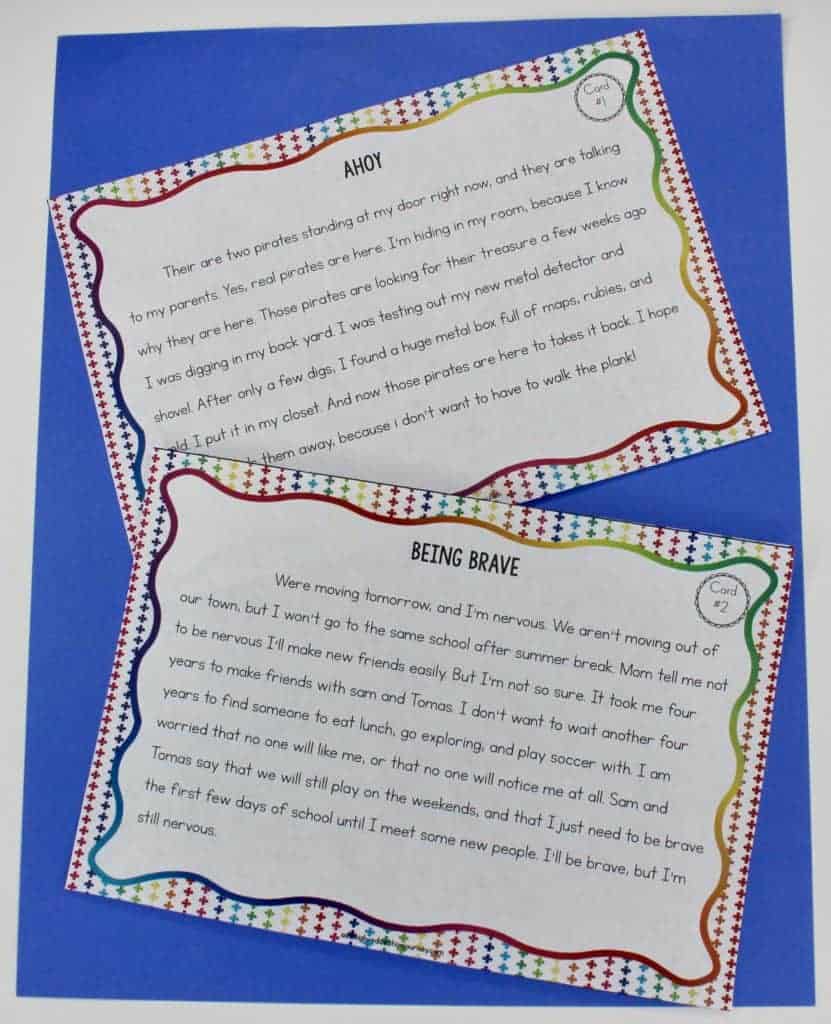 Card
#1
AHOY
Their are two pirates standing at my door right now, and they are talking
to my parents. Yes, real pirates are here. I'm hiding in my room, because I know
why they are here. Those pirates are looking for their treasure a few weeks ago
I was digging in my back yard. I was testing out my new metal detector and
shovel. After only a few digs, I found a huge metal box full of maps, rubies, and
I put it in my closet. And now those pirates are here to takes it back. I hope
them away, because i don't want to have to walk the plank!
BEING BRAVE
Card
#2
Were moving tomorrow, and I'm nervous. We aren't moving out of
our town, but I won't go to the same school after summer break. Mom tell me not
to be nervous I'll make new friends easily. But I'm not so sure. It took me four
years to make friends with sam and Tomas. I don't want to wait another four
years to find someone to eat lunch, go exploring, and play soccer with. I am
worried that no one will like me, or that no one will notice me at all. Sam and
Tomas say that we will still play on the weekends, and that I just need to be brave
the first few days of school until I meet some new people. I'll be brave, but I'm
still nervous.